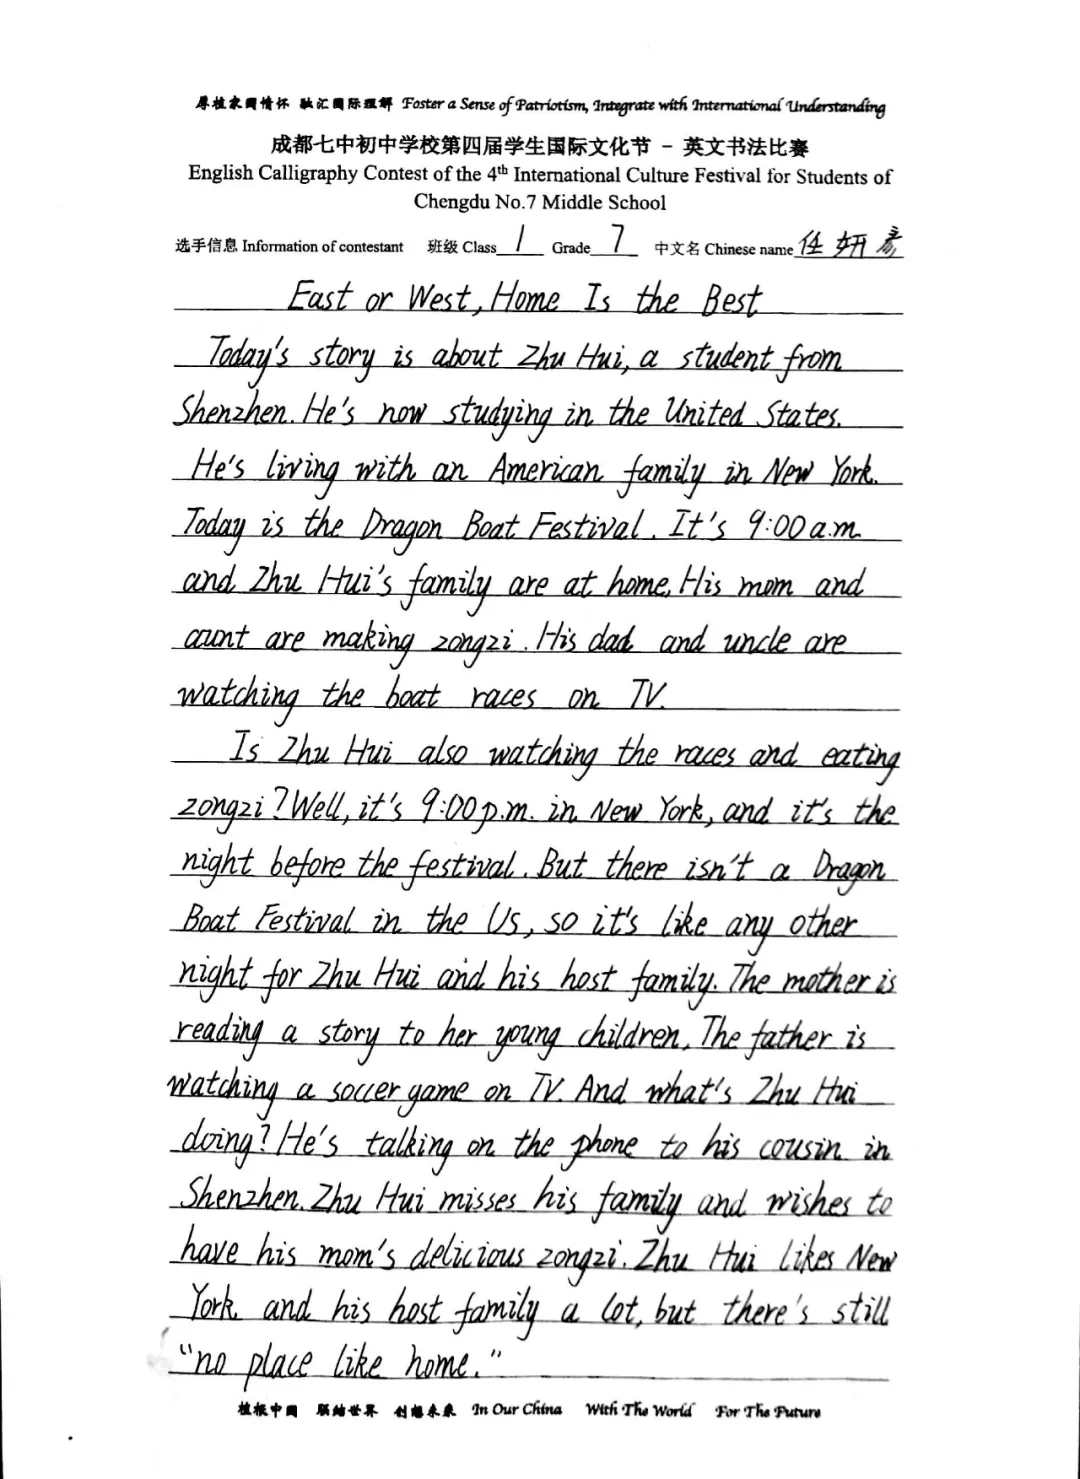 厚植家国情怀 融汇国际理解 Foster a Sense of Patriotism, Integrate with International Understanding
成都七中初中学校第四届学生国际文化节 - 英文书法比赛
English Calligraphy Contest of the 4th International Culture Festival for Students of
Chengdu No.7 Middle School
选手信息 Information of contestant 班级 Class 1 Grade 7 中文名 Chinese name 任妍彦
East or West, Home Is the Best
Today's story is about Zhu Hui, a student from
Shenzhen. He's now studying in the United States.
He's living with an American family in New York.
Today is the Dragon Boat Festival. It's 9:00 a.m.
and Zhu Hui's family are at home. His mom and
aunt are making zongzi. His dad and uncle are
watching the boat races on TV.
Is Zhu Hui also watching the races and eating
zongzi? Well, it's 9:00 p.m. in New York, and it's the
night before the festival. But there isn't a Dragon
Boat Festival in the Us, so it's like any other
night for Zhu Hui and his host family. The mother is
reading a story to her young children. The father is
watching a soccer game on TV. And what's Zhu Hui
doing? He's talking on the phone to his cousin in
Shenzhen. Zhu Hui misses his family and wishes to
have his mom's delicious zongzi. Zhu Hui likes New
York and his host family a lot, but there's still
"no place like home."
植根中国 联结世界 创想未来 In Our China With The World For The Future